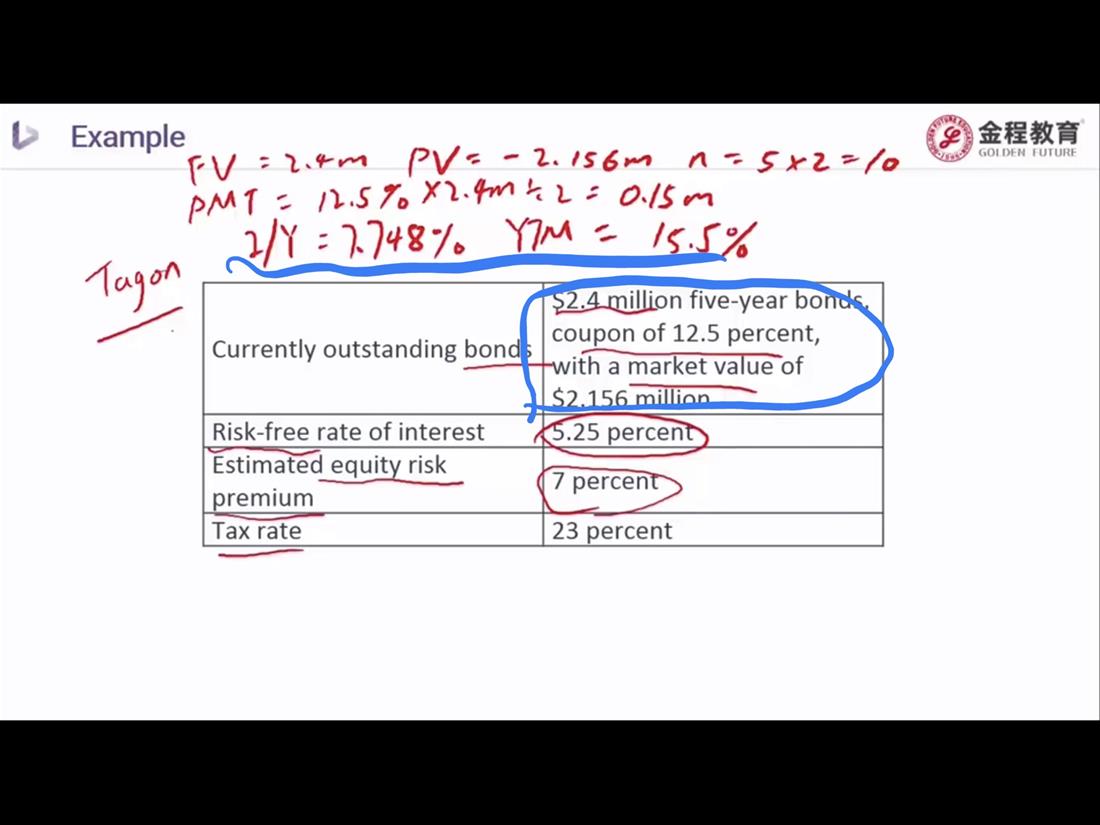 Example
金程教育
GOLDEN FUTURE
FV = 2.4m PV = -2.156m n = 5×2=10
PMT = 12.5% ×2.4m ÷2 = 0.15m
I/Y = 7.748% YTM = 15.5%
Tagon
Currently outstanding bonds
$2.4 million five-year bonds,
coupon of 12.5 percent,
with a market value of
$2.156 million
Risk-free rate of interest 5.25 percent
Estimated equity risk
premium
7 percent
Tax rate 23 percent